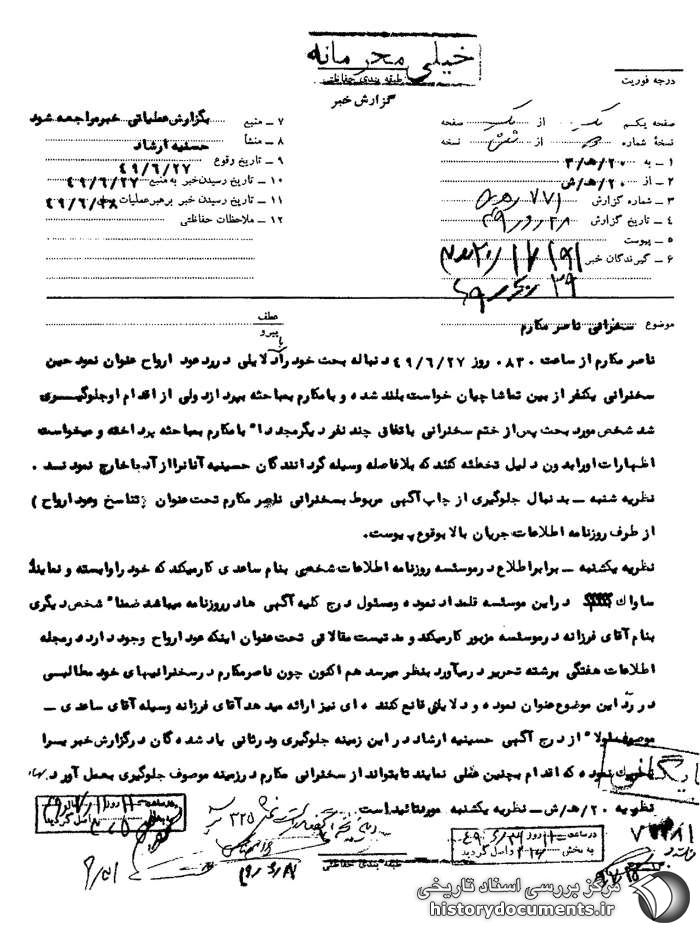 خیلی محرمانه
طبقه بندی حفاظتی
گزارش خبر
درجه فوریت
صفحه یکم از صفحه
نسخه شماره از شش نسخه
۱ ــ به ۲۰/ﻫ/۳
۲ ــ از ۲۰/ﻫ/ش
۳ ــ شماره گزارش ۷۷۱
۴ ــ تاریخ گزارش
۵ ــ پیوست
۶ ــ گیرندگان خبر
۷ ــ منبع بگزارش عملیاتی خبر مراجعه شود
۸ ــ منشأ حسنیه ارشاد
۹ ــ تاریخ وقوع ۴۹/۶/۲۷
۱۰ ــ تاریخ رسیدن خبر به منبع ۴۹/۶/۲۷
۱۱ ــ تاریخ رسیدن خبر برهبر عملیات ۴۹/۶/۲۸
۱۲ ــ ملاحظات حفاظتی
موضوع سخنرانی ناصر مکارم
عطف
پیرو
ناصر مکارم از ساعت ۰۸۳۰ روز ۴۹/۶/۲۷ دنباله بحث خود را با دلایلی در رد عود ارواح عنوان نمود حین
سخنرانی یکنفر از بین تماشاچیان خواست بلند شده و با مکارم بمباحثه بپردازد ولی از اقدام او جلوگیـــری
شد شخص مورد بحث پس از ختم سخنرانی باتفاق چند نفر دیگر مجدداً با مکارم بمباحثه پرداخته و میخواست
اظهارات او را بدون دلیل تخطئه کند که بلافاصله وسیله گردانندگان حسینیه آنانرا از آنجا خارج نمودند .
نظریه شنبه ــ بدنبال جلوگیری از چاپ آگهی مربوط بسخنرانی ناصر مکارم تحت عنوان ( تناسخ وعود ارواح )
از طرف روزنامه اطلاعات جریان بالا بوقوع پیوست.
نظریه یکشنبه ــ برابر اطلاع در موسسه روزنامه اطلاعات شخصی بنام ساعدی کار میکند که خود را وابسته و نمایند‌ﮤ
ساواک در این موسسه قلمداد نموده ومسئول درج کلیه آگهی ها در روزنامه میباشد ضمناً شخص دیگری
بنام آقای فرزانه در موسسه مزبور کار میکند و مدتیست مقالاتی تحت عنوان اینکه عود ارواح وجود دارد در مجله
اطلاعات هفتگی برشته تحریر در میآورد بنظر میرسد هم اکنون چون ناصر مکارم در سخنرانیهای خود مطالبسی
در رد این موضوع عنوان نموده و دلایلی قانع کننده ای نیز ارائه میدهد آقای فرزانه وسیله آقای ساعدی ــ
موصوف اولاً از درج آگهی حسینیه ارشاد در این زمینه جلوگیری ودرثانی یاد شدگان در گزارش خبر بـسرا
نموده که اقدام بچنین عملی نمایند تا بتواند از سخنرانی مکارم در زمینه موصوف جلوگیری بعمل آورد.
نظریه ۲۰/ﻫ/ش ــ نظریه یکشنبه مورد تائید است
بایگانی شود
در ساعت روز
به بخش واصل گردید
در ساعت ۱۱ روز
به بخش واصل گردید
طبقه بندی حفاظتی
مرکز بررسی اسناد تاریخی
historydocuments.ir